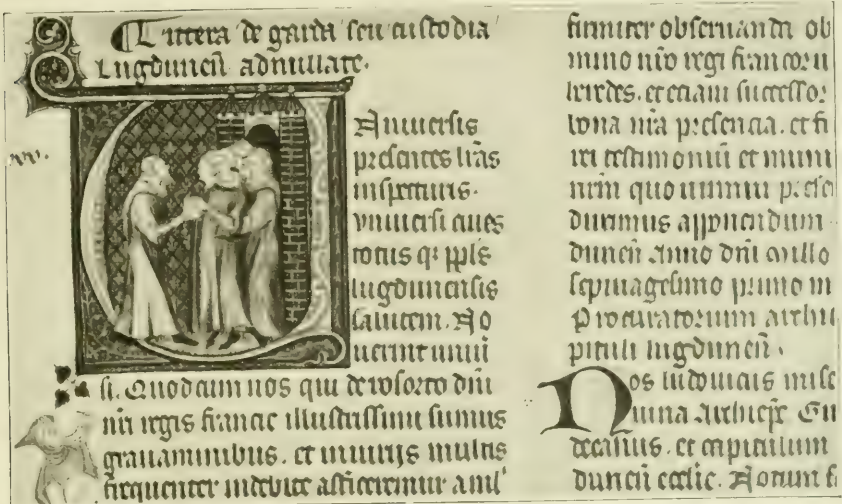 Littera de garda seu custodia
Lugdunen adnullate.
xxv.
Vniuersis
presentes lras
inspecturis.
vniuersi ciues
totus q; ppls
lugdunensis
salutem. No
uerint uniu
si. Quod cum nos qui de ressorto dni
nri regis francie illustrissimi sumus
grauaminibus. et iniuriis multis
frequenter indebite afficeremur a
firmiter obseruanda ob
mino nro regi francoru
heredes. et etiam successor
bona nra presencia. et fi
rei testimoniu et muni
nrm quo utimur prese
duximus apponendum
dunen anno dni millo
septuagesimo primo m
Procuratorium archie
pituli lugdunen.
Nos ludouicus mise
uina Archiepc
decanus. et capitulum
dunen ecclie. Notum f